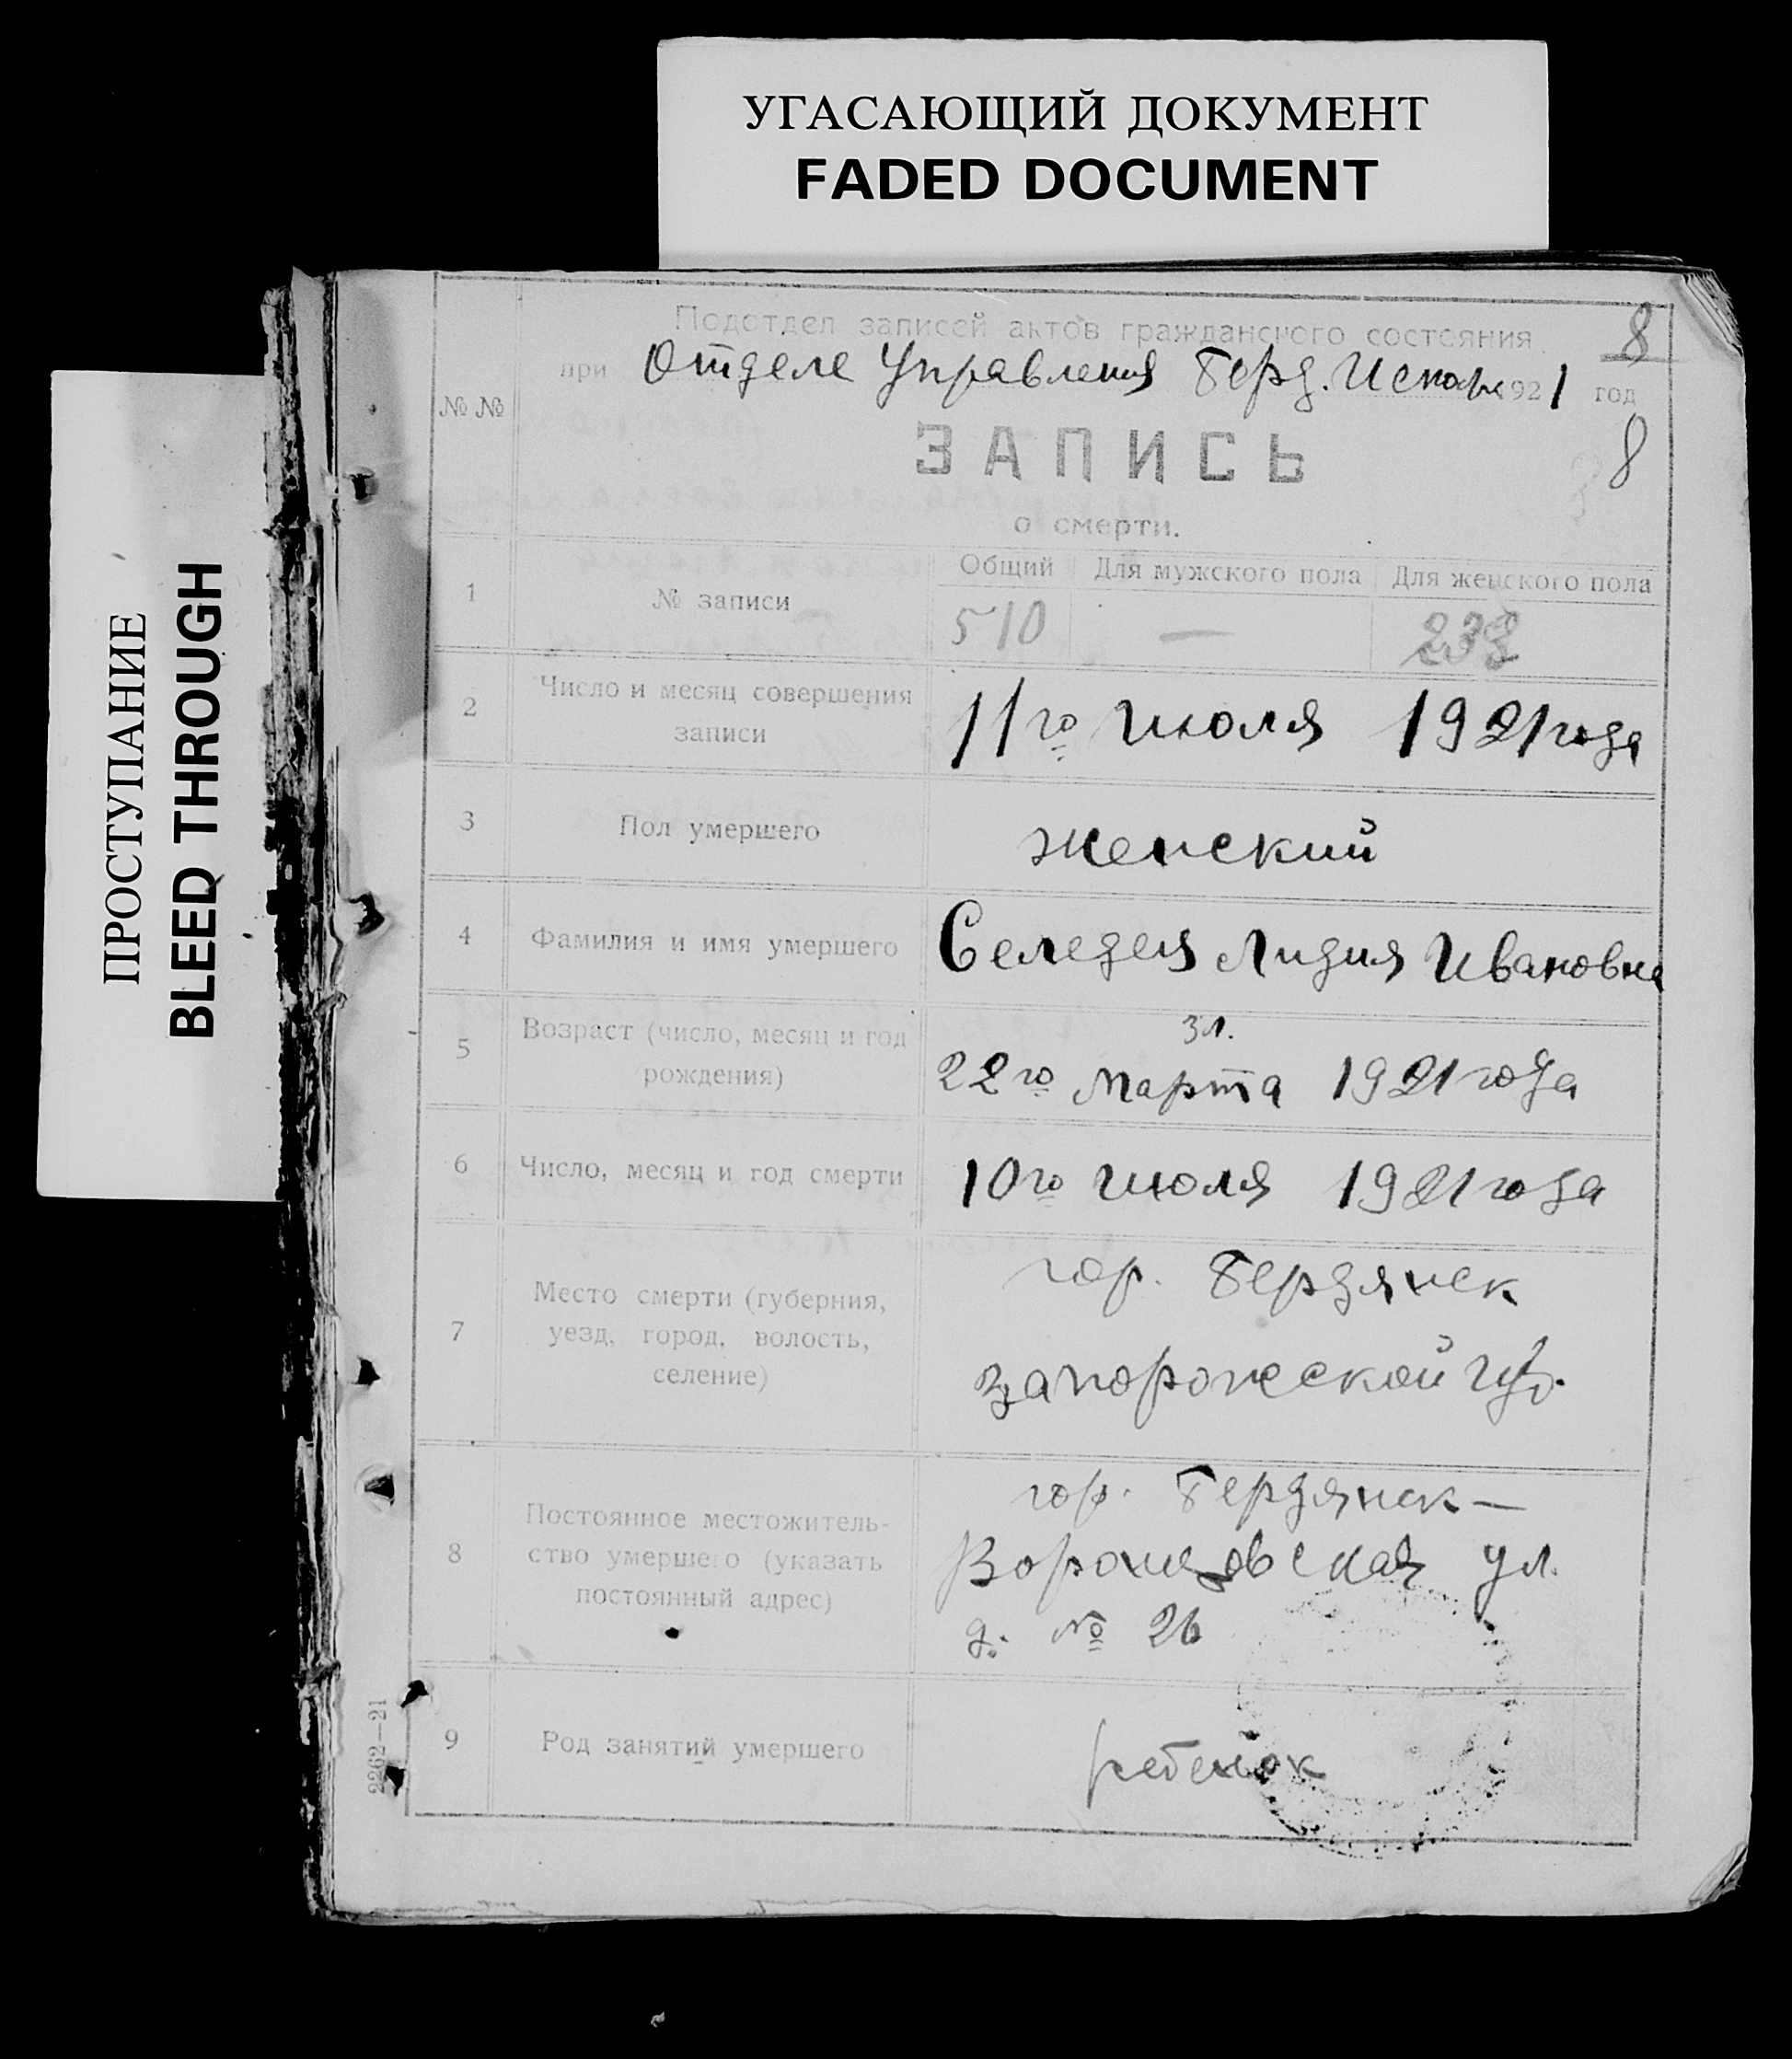 УГАСАЮЩИЙ ДОКУМЕНТ
FADED DOCUMENT
ПРОСТУПАНИЕ
BLEED THROUGH
8
Подотдел записей актов гражданского состояния
при Отделе Управления Берд. 1921 год
№ №
ЗАПИСЬ
8
о смерти.
Общий Для мужского пола Для женского пола
1 № записи 510 —
2 Число и месяц совершения
записи
11го Июля 1921 года
3 Пол умершего женский
4 Фамилия и имя умершего Лидия Ивановна
5 Возраст (число, месяц и год
рождения)
3 л.
22го Марта 1921 года
6 Число, месяц и год смерти 10го Июля 1921 года
7 Место смерти (губерния,
уезд, город, волость,
селение)
гор. Бердянск
запорожской губ.
8 Постоянное местожитель-
ство умершего (указать
постоянный адрес)
гор. Бердянск —
ул.
д. № 26
9 Род занятий умершего ребенок
2262—21